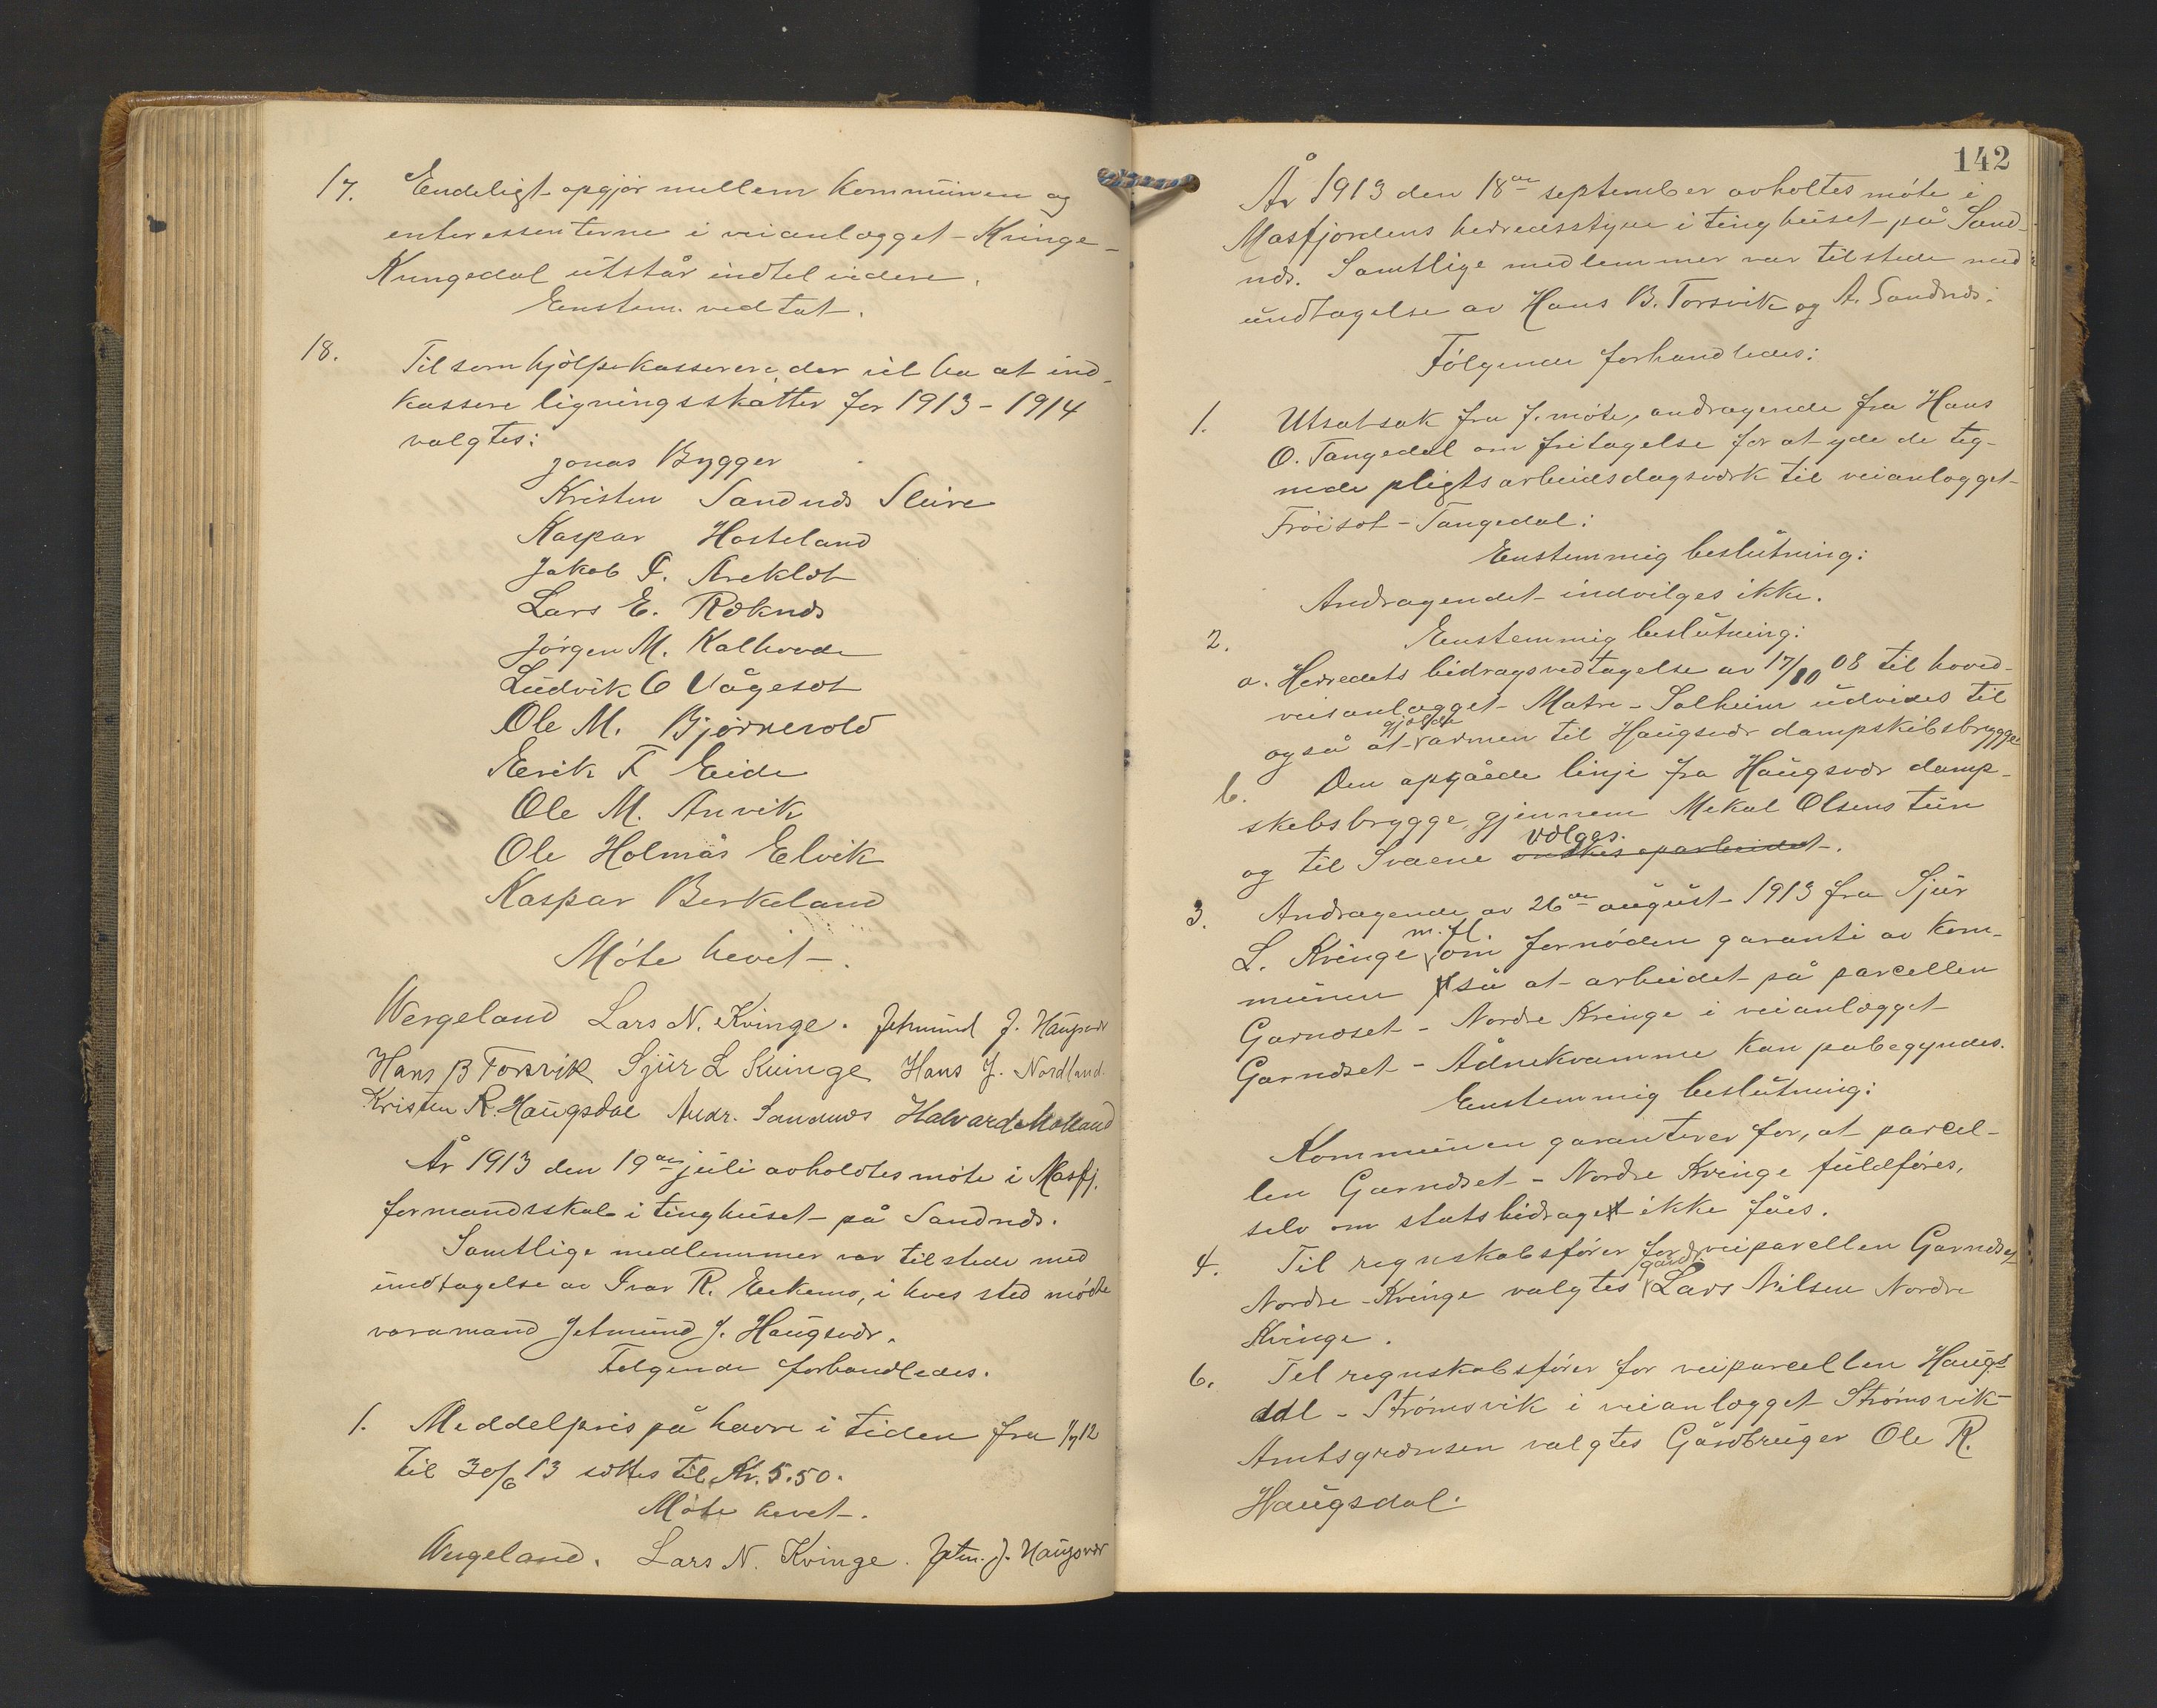 17. Endeligt opgjør mellem kommunen og
enteressenterne i veianlægget Kvinge-
Kungedal utstår indtil videre.
Enstem. vedtat.
18. Til som hjølpekasserere, der vil ha at ind-
kassere ligningsskatter for 1913-1914
valgtes:
Jonas Bygger
Kristen Sandnæs Sleire
Kaspar Hosteland
Jakob P. Areklæt
Lars E. Røknæs
Jørgen M. Kalhovde
Ludvik O Vågesæt
Ole M. Bjørnevold
Eerik F Eide
Ole M. Anvik
Ole Holmås Elvik
Kaspar Berkeland
Møte hevet.
Wergeland Lars N. Kvinge. Jetmund J. Haugsvær
Hans B Torsvik Sjur L Kvinge Hans J. Nordland.
Kristen R. Haugsdal Andr. Sandnæs Halvard Matland
År 1913 den 19de juli avholdtes møte i Masfj.
formandsskab i tinghuset på Sandnæs.
Samtlige medlemmer var tilstede med
undtagelse av Ivar R. Eekemo, i hves sted mødte
varamand Jetmund J. Haugsvær.
Følgende forhandledes.
1. Meddelpris på havre i tiden fra 1/7 12
til 30/6 13 sættes til Kr. 5.50.
Møte hevet.
Wergeland. Lars N. Kvinge. Jetm. J. Haugsvær
142
År 1913 den 18de september avholtes møte i
Masfjordens herredsstyre i tinghuset på Sand-
næs. Samtlige medlemmer var tilstede med
undtagelse av Hans B. Torsvik og A. Sandnæs.
Følgende forhandledes:
1. Utsat sak fra f. møte, andragende fra Hans
O. Tangedal om fritagelse for at yde de teg-
nede pligtsarbeidsdagsværk til veianlægget
Frøiset-Tangedal:
Enstemmig beslutning:
Andragendet indvilges ikke.
2. Eenstemmig beslutning:
a. Herredets bidragsvedtagelse av 17/10 08 til hoved-
veianlægget Matre-Solheim udvides til
også at gjælde armen til Haugsvær dampskibsbrygge
b. Den opgåede linje fra Haugsvær damp-
skebsbrygge gjennem Mekal Olsens tun
og til Svaene ønskes oparbeidet vælges.
3. Andragende av 26de august 1913 fra Sjur
L. Kvinge m. fl. om fornøden garanti av kom-
munen så at arbeidet på parcellen
Garnæset - Nordre Kvinge i veianlægget
Garnæset - Ådnekvamme kan pabegyndes.
Enstemmig beslutning:
Kommunen garanterer for, at parcel-
len Garnæset - Nordre Kvinge fuldføres,
selv om statsbidraget ikke fåes.
4. Til regnskabsfører for veiparcellen Garnæset-
Nordre-Kvinge valgtes gardb. Lars Nilsen Nordre
Kvinge.
6. Tel regnskabsfører for veiparcellen Haugs-
dal - Strømsvik i veianlægget Strømsvik-
Amtsgrænsen valgtes Gårdbruger Ole R.
Haugsdal.